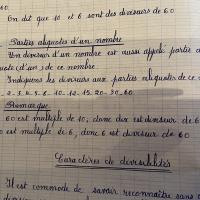 60.
On dit que 10 et 6 sont des diviseurs de 60
Parties aliquotes d'un nombre
Un diviseur d'un nombre est aussi appelé partie a
(d'un) de ce nombre
Indiquons les diviseurs aux parties aliquotes de ce
2. 3. 4. 5. 6. 10. 12. 15. 20. 30. 60
Remarque
60 est multiple de 10; donc dix est diviseur de 6
0 est multiple de 6, donc 6 est diviseur de 60
Caractères de divisibilités
Il est commode de savoir reconnaître sans